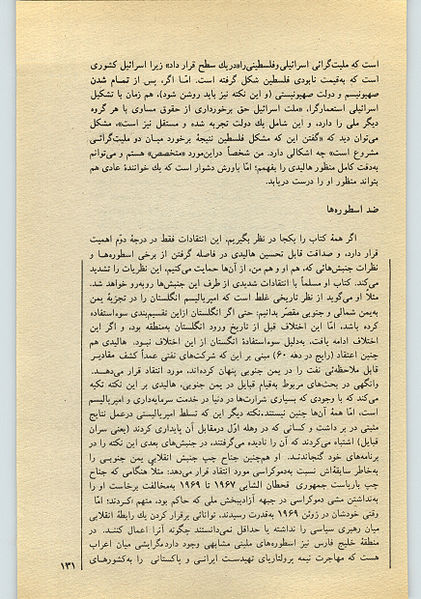 است که ملیت‌گرائی اسرائیلی وفلسطینی‌را«دریك سطح قرار داد» زیرا اسرائیل کشوری
است که به‌قیمت نابودی فلسطین شکل گرفته است. امّا اگر، پس از تمام شدن
صهیونیسم و دولت صهیونیستی (و این نکته نیز باید روشن شود)، هم زمان با تشکیل
اسرائیلی استعمارگرا، «ملت اسرائیل حق برخورداری از حقوق مساوی با هر گروه
دیگر ملی را دارد، و این شامل یك دولت تجربه شده و مستقل نیز است»، مشکل
می‌توان دید که «گفتن این که مشکل فلسطین نتیجهٔ برخورد میان دو ملیت‌گرائی
مشروع است» چه اشکالی دارد. من شخصاً دراین‌مورد «متخصص» هستم و می‌توانم
به‌دقت کامل منظور هالیدی را بفهمم؛ امّا باورش دشوار است که یك خوانندهٔ عادی هم
بتواند منظور او را درست دریابد.
ضد اسطوره‌ها
اگر همهٔ کتاب را یکجا در نظر بگیریم، این انتقادات فقط در درجهٔ دوّم اهمیت
قرار دارد، و صداقت قابل تحسین هالیدی در فاصله گرفتن از برخی اسطوره‌هـا و
نظرات جنبش‌هائی که، هم او و هم من، از آن‌ها حمایت می‌کنیم، این نظریات را تشدید
می‌کند. کتاب او مسلماً با انتقادات شدیدی از طرف این جنبش‌ها روبه‌رو خواهد شد.
مثلا او می‌گوید از نظر تاریخی غلط است که امپریالیسم انگلستان را در تجزیهٔ یمن
به‌یمن شمالی و جنوبی مقصّر بدانیم: حتی اگر انگلستان ازاین تقسیم‌بندی سوءاستفاده
کرده باشد، امّا این اختلاف قبل از تاریخ ورود انگلستان به‌منطقه بود، و اگر این
اختلاف ادامه یافت، به‌دلیل سوءاستفادهٔ انگلستان از این اختلاف نبـود. هالیدی هم
چنین اعتقاد (رایج در دهه ۶۰) مبنی بر این که شرکت‌های نفتی عمداً کشف مقادیـر
قابل ملاحظه‌ئی نفت را در یمن جنوبی پنهان کرده‌اند، مورد انتقاد قرار می‌دهـد.
وانگهی در بحث‌های مربوط به‌قیام قبایل در یمن جنوبی، هالیدی بر این نکته تکیه
می‌کند که با وجودی که بسیاری شرارت‌ها در دنیا در خدمت سرمایه‌داری و امپریالیسم
است، امّا همهٔ آن‌ها چنین نیستند.نکته دیگر این که تسلط امپریالیستی درعمل نتایج
مثبتی در بر داشت و کسانی که در وهله اوّل درمقابل آن پایداری کردند (یعنی سران
قبایل) اشتباه می‌کردند که آن را نادیده می‌گرفتند، در جنبش‌های بعدی این نکته را در
برنامه‌های خود گنجاندنـد. او هم‌چنین جناح چپ جنبش انقلابی یمن جنوبـی را
به‌خاطر سابقه‌اش نسبت به‌دموکراسی مورد انتقاد قرار می‌دهد: مثلاً هنگامی که جناح
چپ باریاست جمهوری قحطان الشابی ۱۹۶۷ تا ۱۹۶۹ به‌مخالفت برخاست او را
به‌نداشتن مشی دموکراسی در جبهه آزادیبخش ملی که حاکم بود، متهم کـردند؛ امّا
وقتی خودشان در ژوئن ۱۹۶۹ به‌قدرت رسیدند، توانائی برقرار کردن یك رابطهٔ انقلابی
میان رهبری سیاسی را نداشته یا حداقل نمی‌دانستند چگونه آن‌را اعمال کننـد. در
منطقهٔ خلیج فارس نیز اسطوره‌های ملیتی مشابهی وجود دارد.گرایشی میان اعراب
هست که مهاجرت نیمه پرولتاریای تهیدست ایرانی و پاکستانی را به‌کشورهـای
۱۳۱